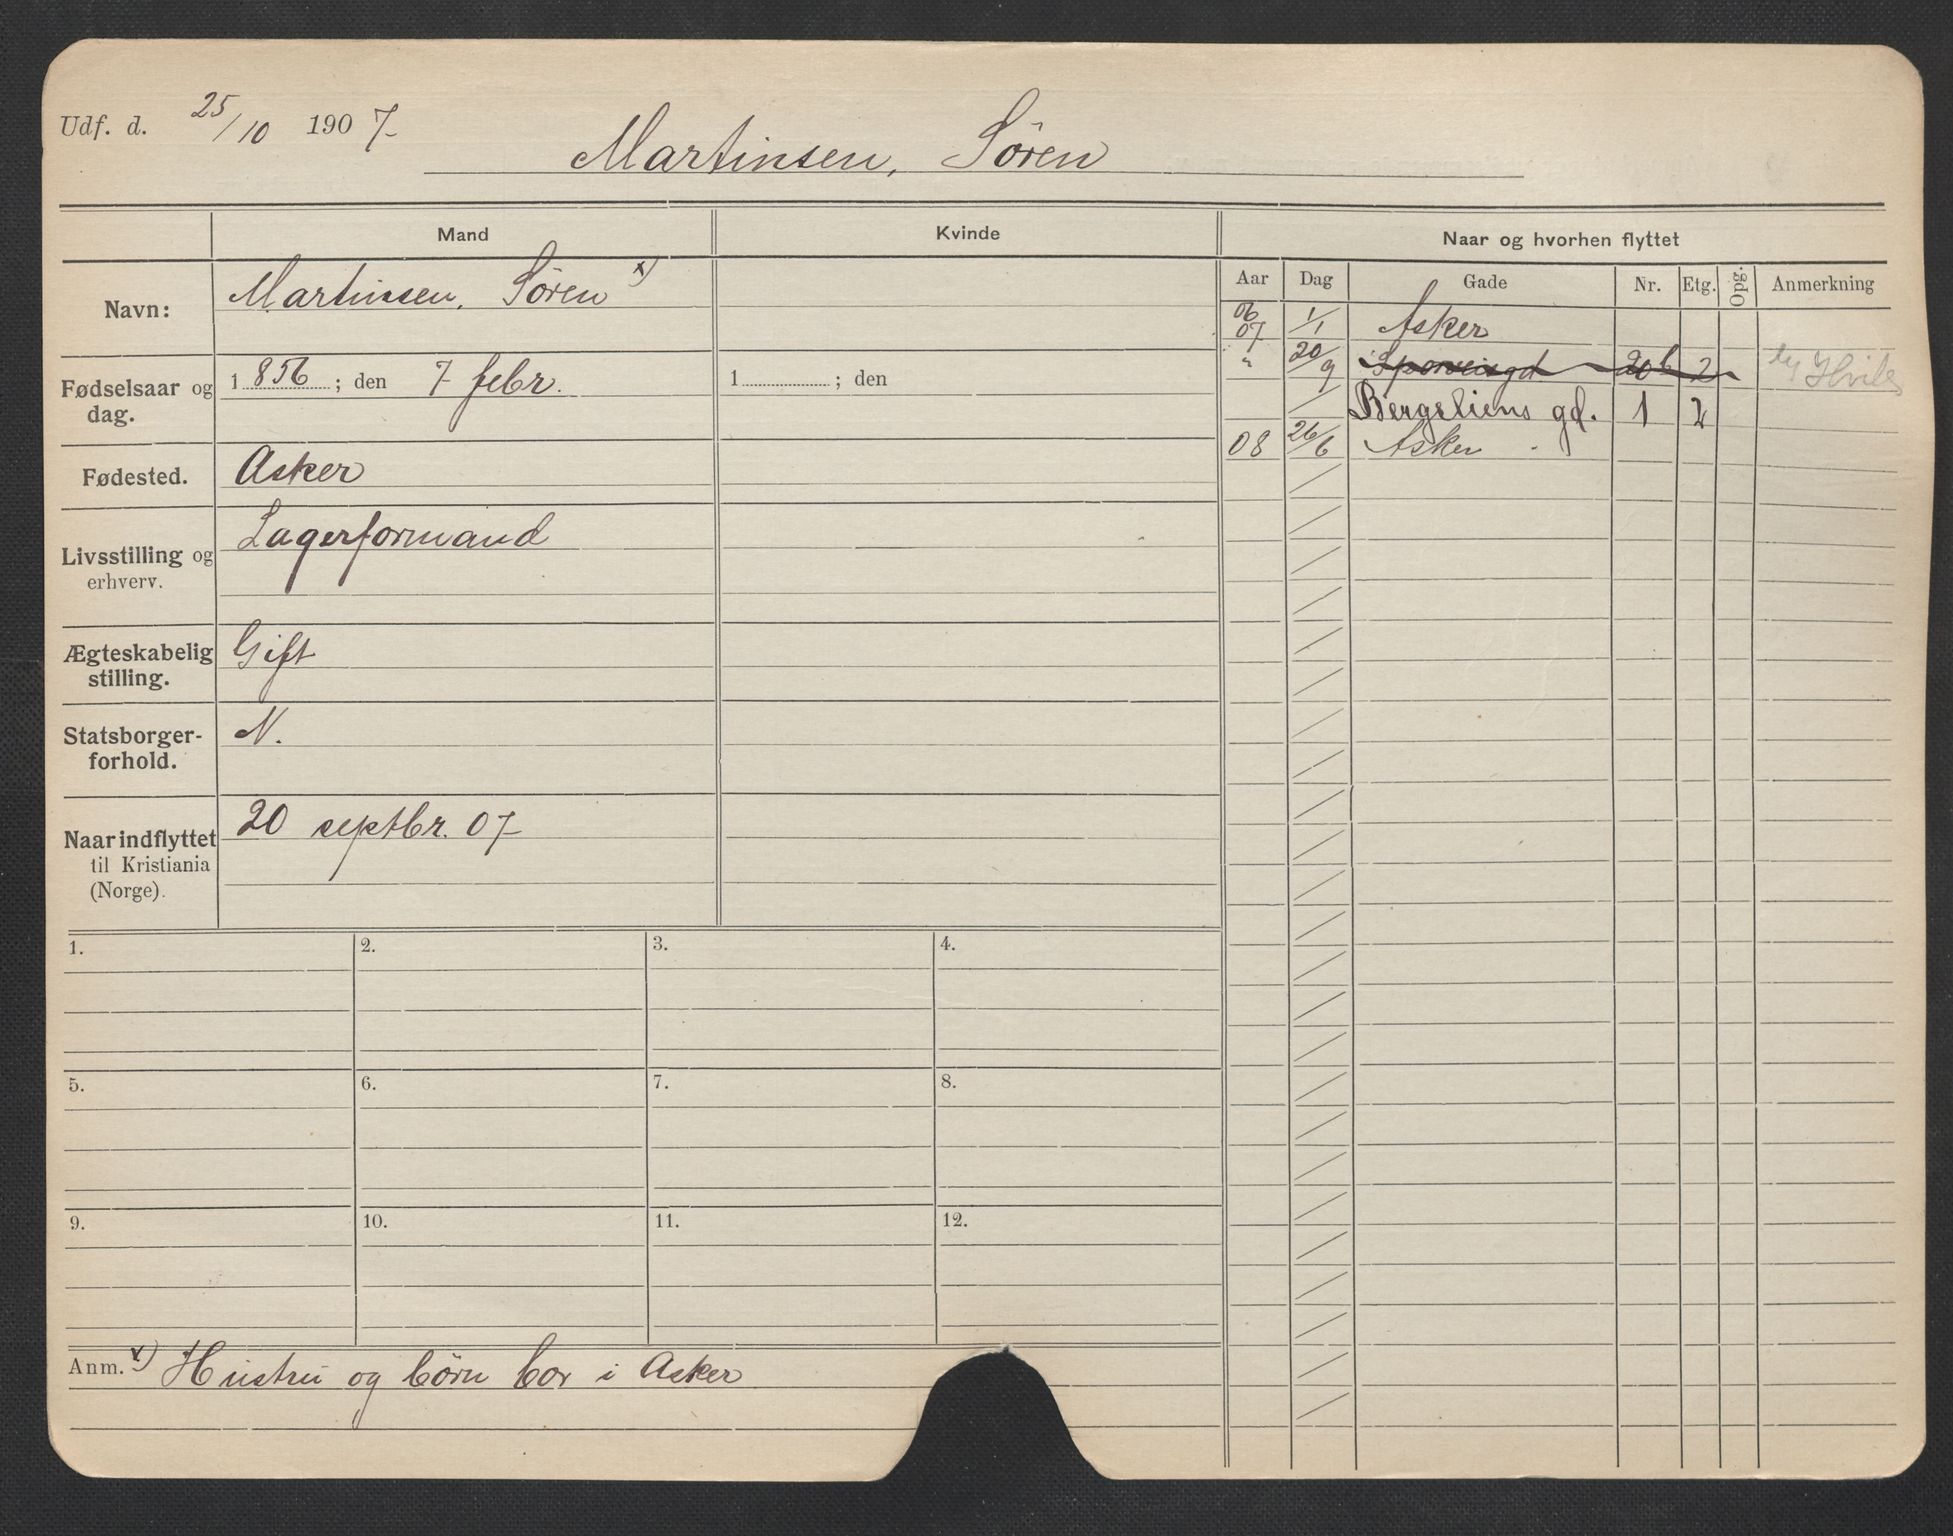 Udf. d. 25/10 1907
Martinsen, Søren
Mand Kvinde Naar og hvorhen flyttet
Aar Dag Gade Nr. Etg. Opg. Anmerkning
Navn: Martinsen, Søren x)
Fødselsaar og dag. 1856; den 7 febr. 1 ; den
Fødested. Asker
Livsstilling og erhverv. Lagerformand
Ægteskabelig stilling. Gift
Statsborgerforhold. N.
Naar indflyttet til Kristiania (Norge). 20 septbr. 07
06 07 1/1 Asker
" 20/9 Sporveisgd 20b 2
Bergsliens gd. 1 2
08 26/6 Asker
1. 2. 3. 4.
5. 6. 7. 8.
9. 10. 11. 12.
Anm. x) Hustru og børn bor i Asker